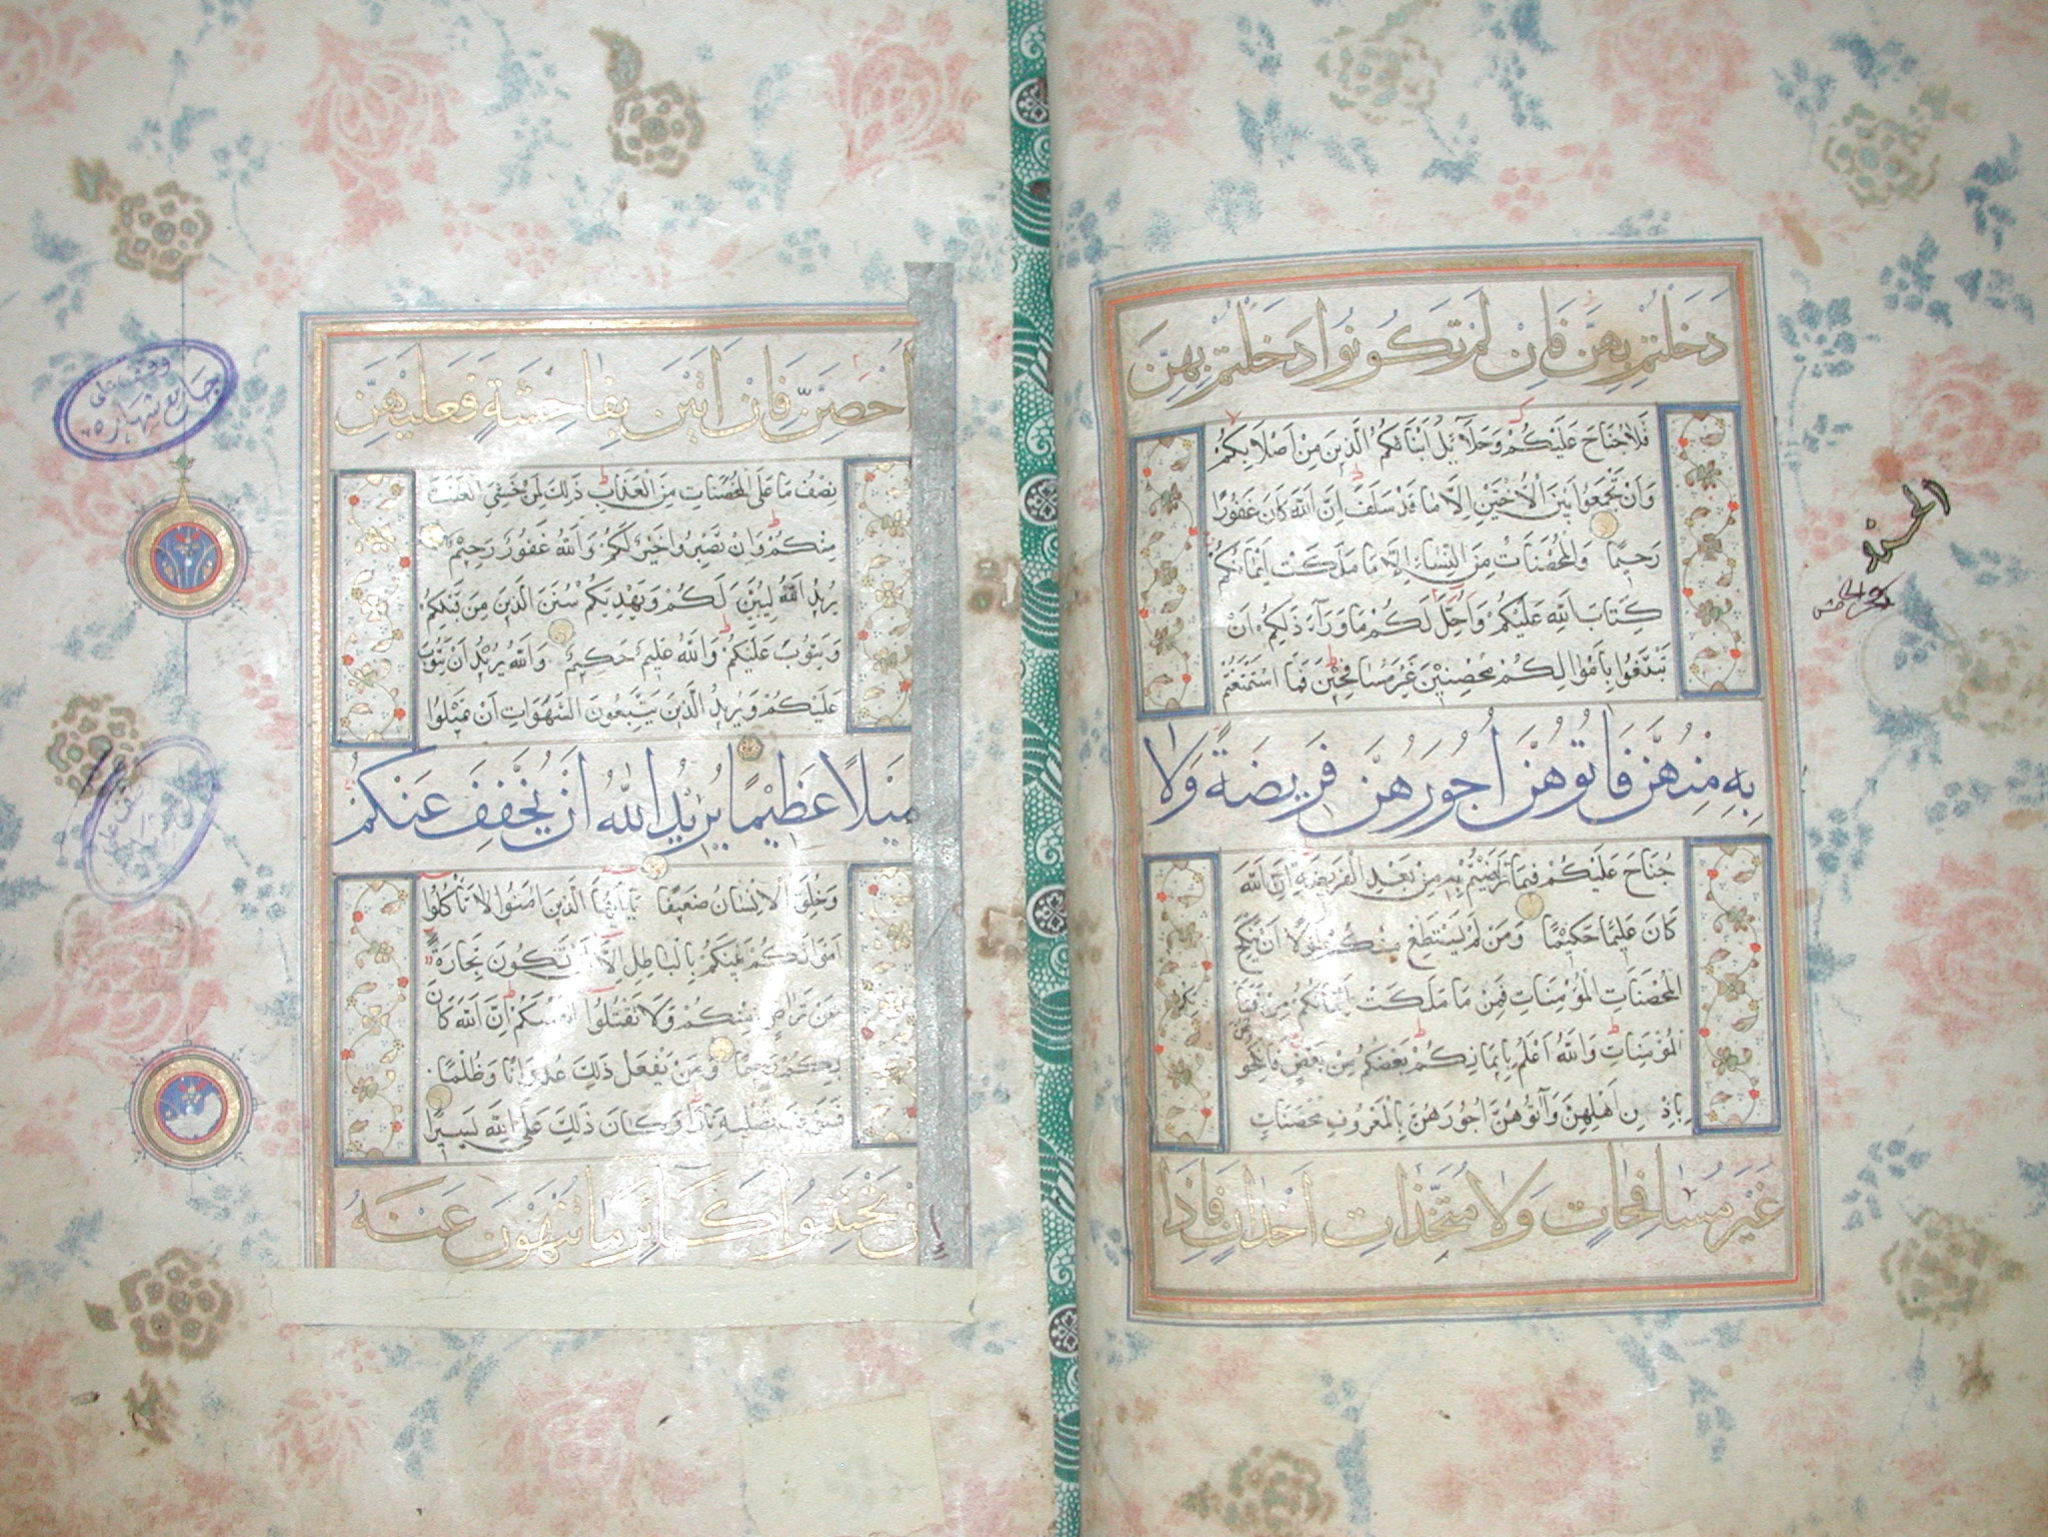 دَخَلْتُمْ بِهِنَّ فَاِنْ لَمْ تَكُونُوا دَخَلْتُمْ بِهِنَّ
فَلَا جُنَاحَ عَلَيْكُمْ وَحَلَآئِلُ اَبْنَائِكُمُ الَّذِينَ مِنْ اَصْلَابِكُمْ
وَاَنْ تَجْمَعُوا بَيْنَ الْاُخْتَيْنِ اِلَّا مَا قَدْ سَلَفَ اِنَّ اللّٰهَ كَانَ غَفُورًا
رَحِيمًا وَالْمُحْصَنَاتُ مِنَ النِّسَاءِ اِلَّا مَا مَلَكَتْ اَيْمَانُكُمْ
كِتَابَ اللّٰهِ عَلَيْكُمْ وَاُحِلَّ لَكُمْ مَا وَرَآءَ ذٰلِكُمْ اَنْ
تَبْتَغُوا بِاَمْوَالِكُمْ مُحْصِنِينَ غَيْرَ مُسَافِحِينَ فَمَا اسْتَمْتَعْتُمْ
بِهِ مِنْهُنَّ فَاٰتُوهُنَّ اُجُورَهُنَّ فَرِيضَةً وَلَا
جُنَاحَ عَلَيْكُمْ فِيمَا تَرَاضَيْتُمْ بِهِ مِنْ بَعْدِ الْفَرِيضَةِ اِنَّ اللّٰهَ
كَانَ عَلِيمًا حَكِيمًا وَمَنْ لَمْ يَسْتَطِعْ مِنْكُمْ طَوْلًا اَنْ يَنْكِحَ
الْمُحْصَنَاتِ الْمُؤْمِنَاتِ فَمِنْ مَا مَلَكَتْ اَيْمَانُكُمْ مِنْ فَتَيَاتِكُمُ
الْمُؤْمِنَاتِ وَاللّٰهُ اَعْلَمُ بِاِيمَانِكُمْ بَعْضُكُمْ مِنْ بَعْضٍ فَانْكِحُوهُنَّ
بِاِذْنِ اَهْلِهِنَّ وَآتُوهُنَّ اُجُورَهُنَّ بِالْمَعْرُوفِ مُحْصَنَاتٍ
غَيْرَ مُسَافِحَاتٍ وَلَا مُتَّخِذَاتِ اَخْدَانٍ فَاِذَا
اُحْصِنَّ فَاِنْ اَتَيْنَ بِفَاحِشَةٍ فَعَلَيْهِنَّ
نِصْفُ مَا عَلَى الْمُحْصَنَاتِ مِنَ الْعَذَابِ ذٰلِكَ لِمَنْ خَشِيَ الْعَنَتَ
مِنْكُمْ وَاَنْ تَصْبِرُوا خَيْرٌ لَكُمْ وَاللّٰهُ غَفُورٌ رَحِيمٌ
يُرِيدُ اللّٰهُ لِيُبَيِّنَ لَكُمْ وَيَهْدِيَكُمْ سُنَنَ الَّذِينَ مِنْ قَبْلِكُمْ
وَيَتُوبَ عَلَيْكُمْ وَاللّٰهُ عَلِيمٌ حَكِيمٌ وَاللّٰهُ يُرِيدُ اَنْ يَتُوبَ
عَلَيْكُمْ وَيُرِيدُ الَّذِينَ يَتَّبِعُونَ الشَّهَوَاتِ اَنْ تَمِيلُوا
مَيْلًا عَظِيمًا يُرِيدُ اللّٰهُ اَنْ يُخَفِّفَ عَنْكُمْ
وَخُلِقَ الْاِنْسَانُ ضَعِيفًا يَا اَيُّهَا الَّذِينَ اٰمَنُوا لَا تَأْكُلُوا
اَمْوَالَكُمْ بَيْنَكُمْ بِالْبَاطِلِ اِلَّا اَنْ تَكُونَ تِجَارَةً
عَنْ تَرَاضٍ مِنْكُمْ وَلَا تَقْتُلُوا اَنْفُسَكُمْ اِنَّ اللّٰهَ كَانَ
بِكُمْ رَحِيمًا وَمَنْ يَفْعَلْ ذٰلِكَ عُدْوَانًا وَظُلْمًا
فَسَوْفَ نُصْلِيهِ نَارًا وَكَانَ ذٰلِكَ عَلَى اللّٰهِ يَسِيرًا
اِنْ تَجْتَنِبُوا كَبَآئِرَ مَا تُنْهَوْنَ عَنْهُ
وقف على
جامع شهاره